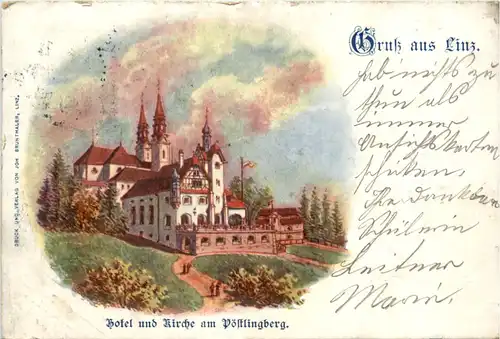 Gruß aus Linz.
hab nichts zu
thun als
immer
Ansichtskarten
schicken,
Ihre dankbare
Schülerin
Leitner
Marie.
Hotel und Kirche am Pöstlingberg.
DRUCK UND VERLAG VON JOH. BRUNTHALER, LINZ.